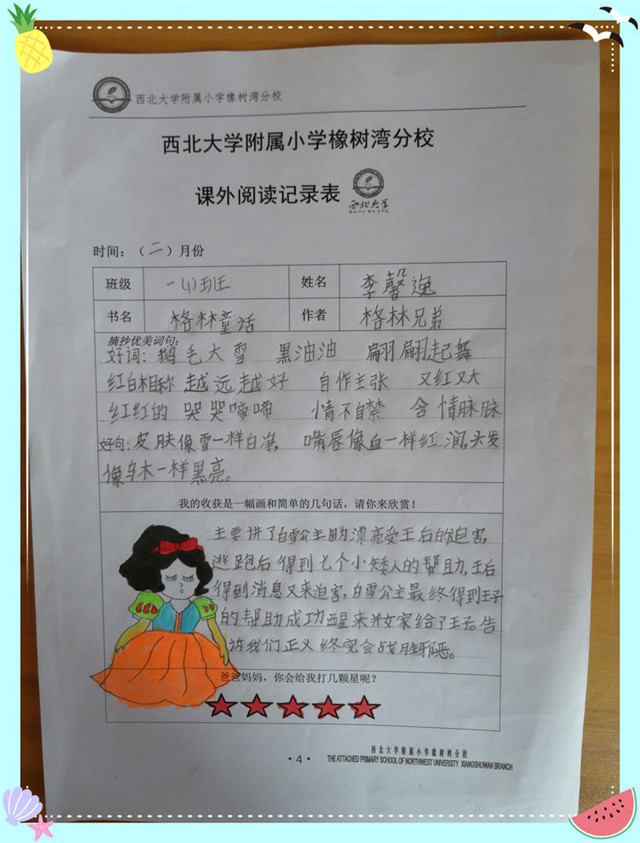 西北大学附属小学橡树湾分校
西北大学附属小学橡树湾分校
课外阅读记录表 西北大学
时间：（二）月份
班级 一(1)班 姓名 李馨逸
书名 格林童话 作者 格林兄弟
摘抄优美词句：
好词：鹅毛大雪 黑油油 翩翩起舞
红白相称 越远越好 自作主张 又红又大
红红的 哭哭啼啼 情不自禁 含情脉脉
好句：皮肤像雪一样白净，嘴唇像血一样红润，头发
像乌木一样黑亮。
我的收获是一幅画和简单的几句话，请你来欣赏！
主要讲了白雪公主因漂亮受王后的迫害，
逃跑后得到七个小矮人的帮助，王后
得到消息又来迫害，白雪公主最终得到王子
的帮助成功醒来并女家给了王子。告
诉我们正义终究会战胜邪恶。
爸爸妈妈，你会给我打几颗星呢？
西北大学附属小学橡树湾分校
·4· THE ATTACHED PRIMARY SCHOOL OF NORTHWEST UNIVERSITY XIANGSHUWAN BRANCH